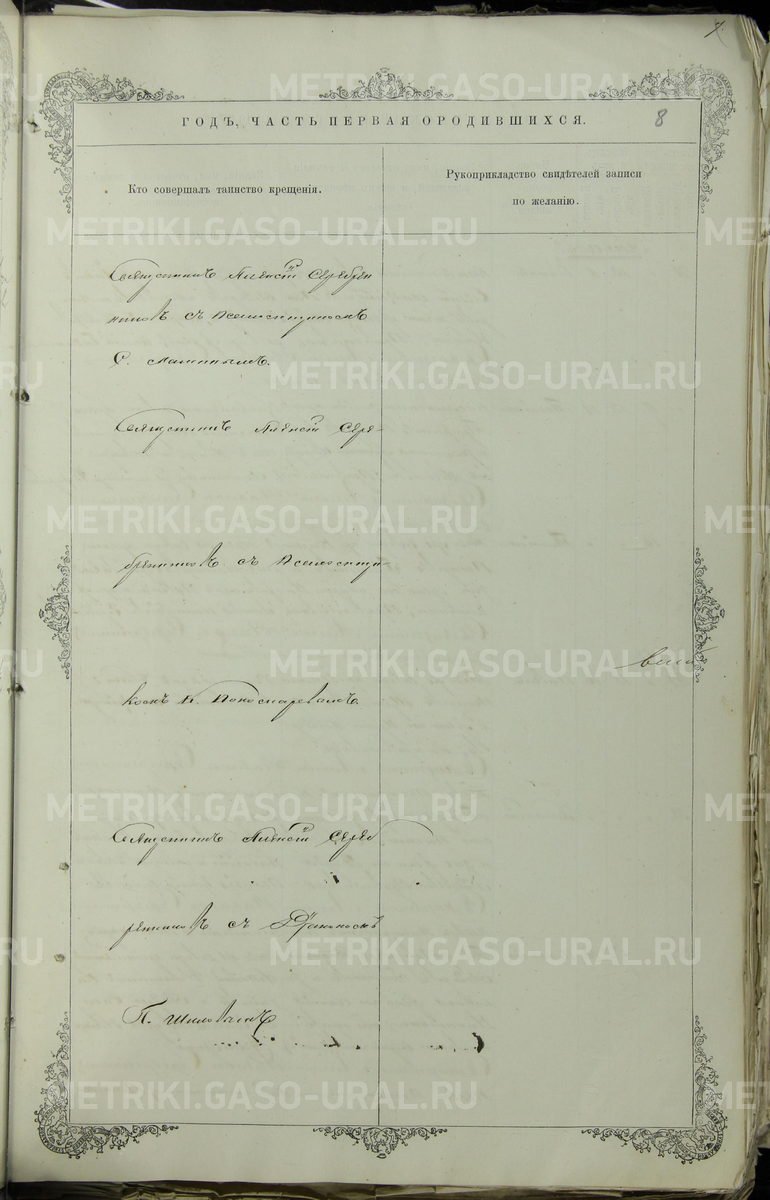 ГОДЪ, ЧАСТЬ ПЕРВАЯ ОРОДИВШИХСЯ.
8
Кто совершалъ таинство крещенія.
Рукоприкладство свидѣтелей записи
по желанію.
Священникъ Алексѣй Серебрен
никовъ съ Псаломщикомъ
С.
Священникъ Алексѣй Сере-
бренниковъ съ Псаломщи-
комъ П. Пономаревымъ.
Священникъ Алексѣй Сереб
ренниковъ съ Діакономъ
П. Шиловымъ
METRIKI.GASO-URAL.RU